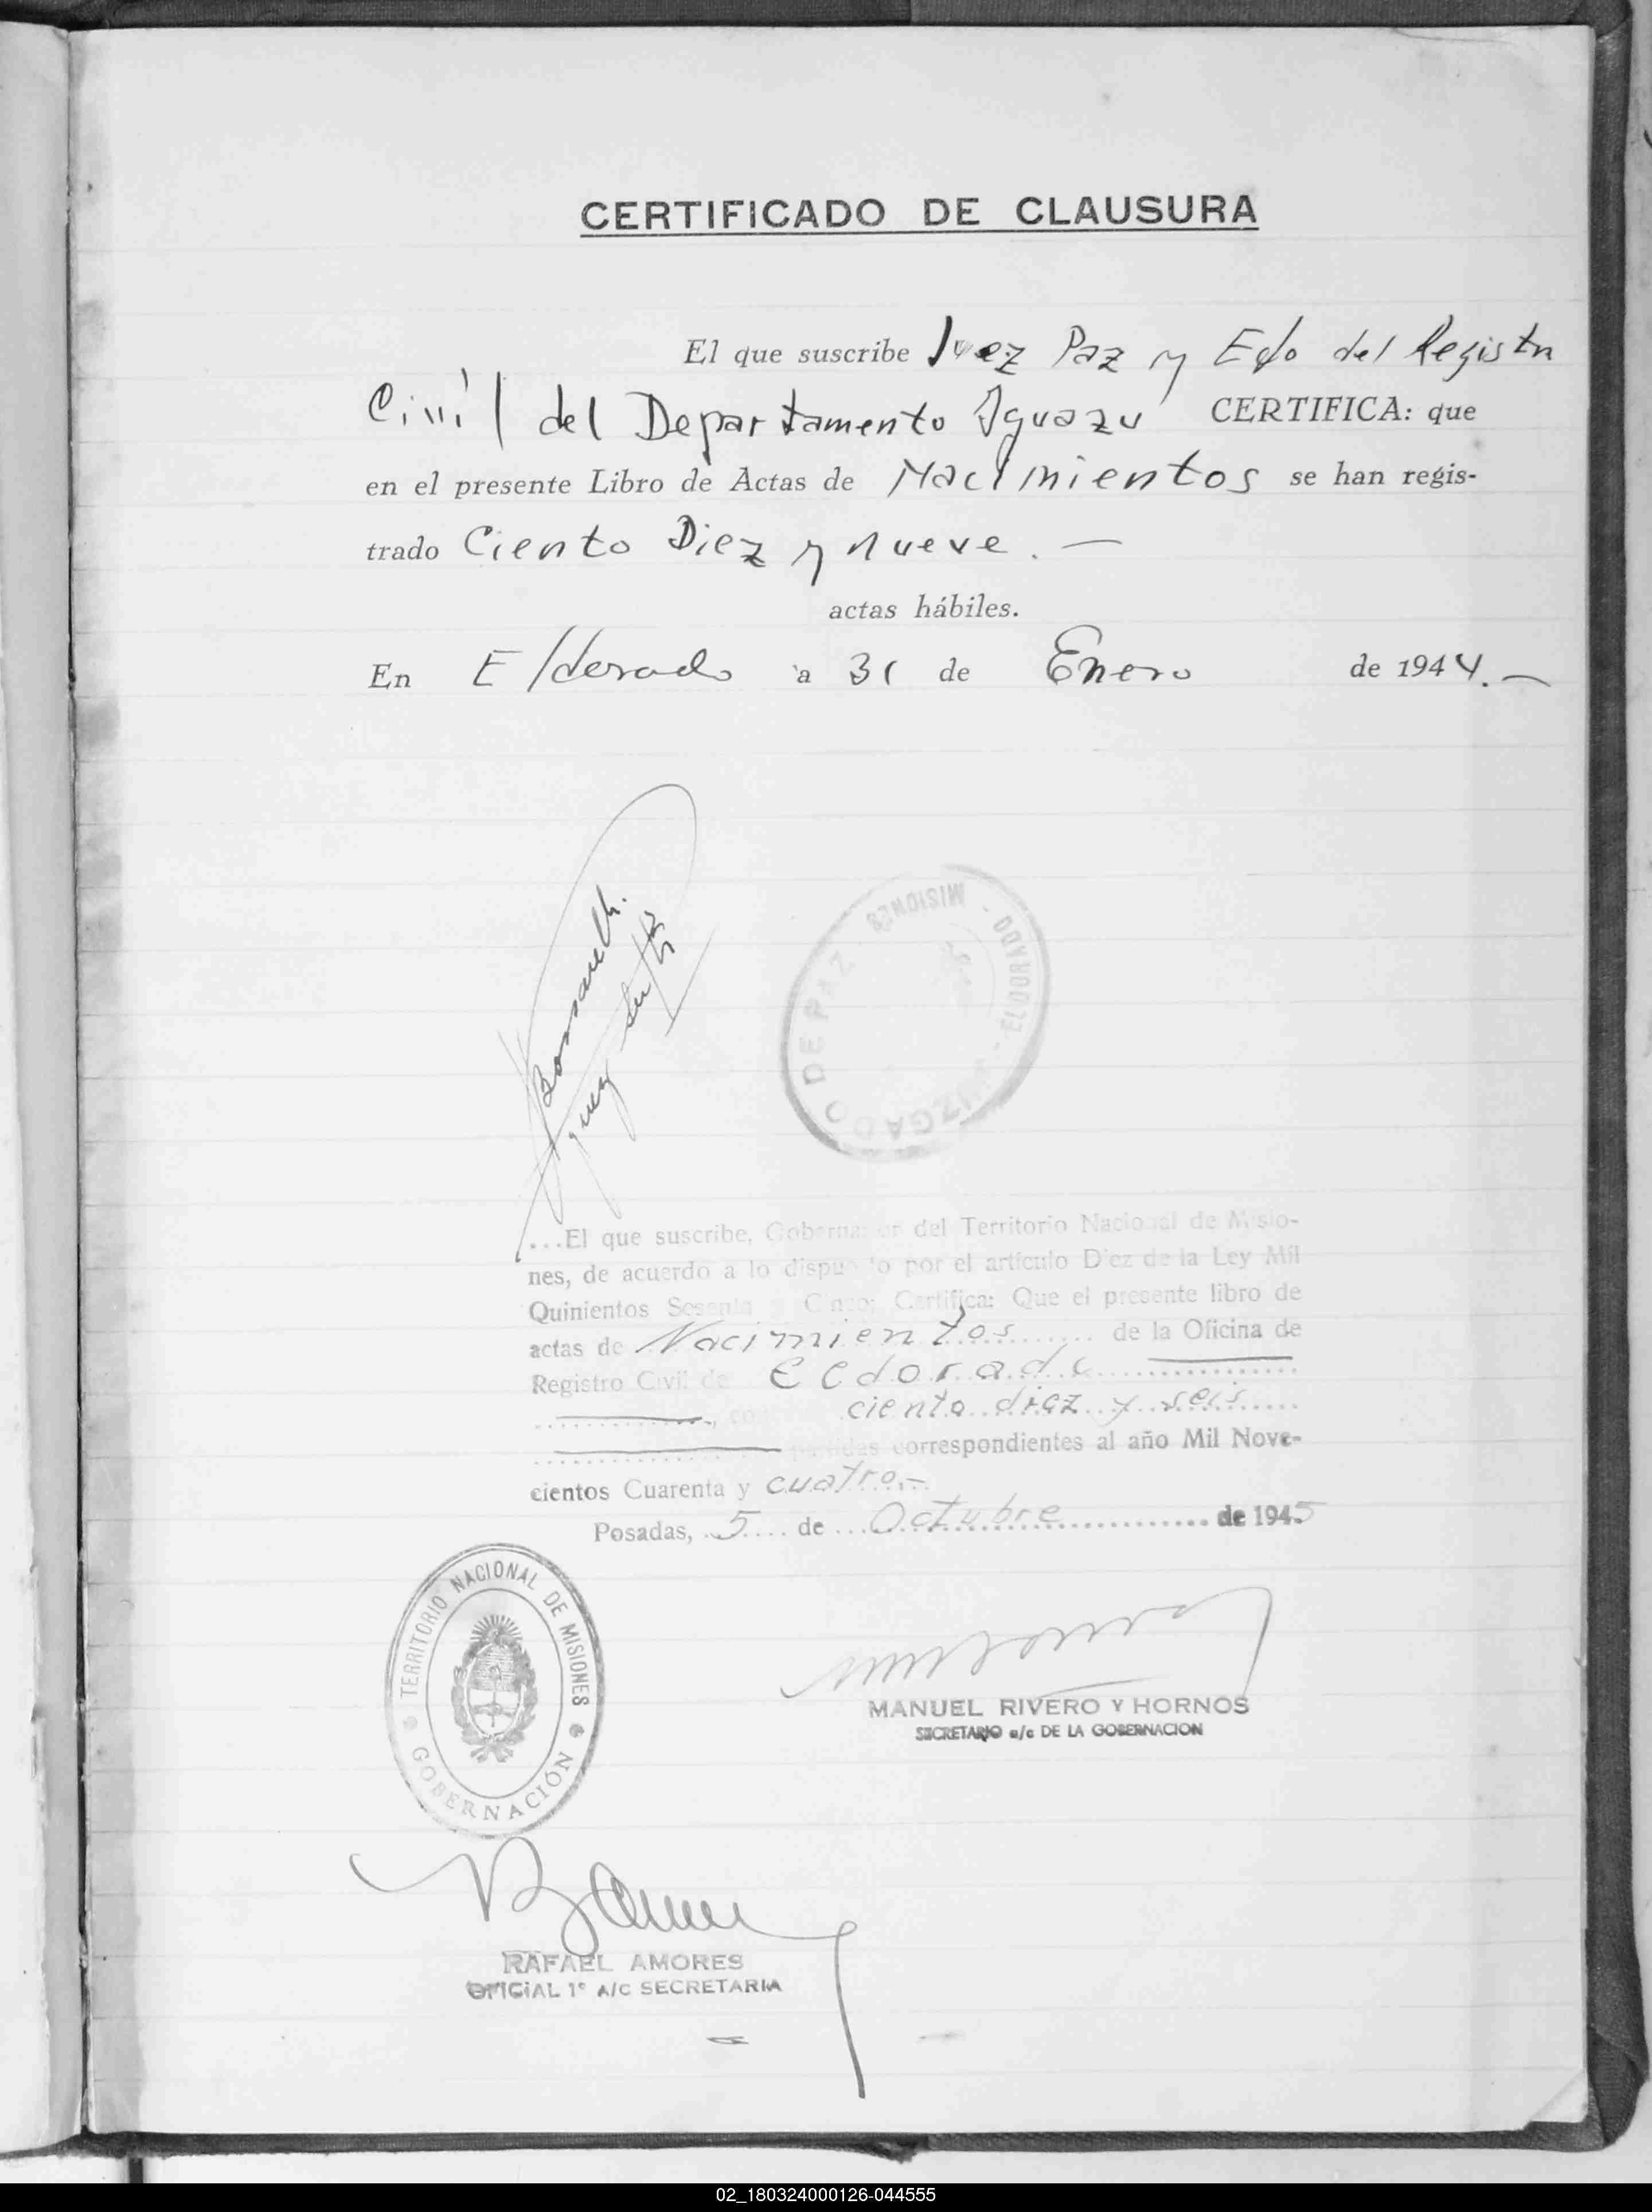 CERTIFICADO DE CLAUSURA
El que suscribe Juez Paz y Edo del Registro
Civil del Departamento Iguazú CERTIFICA: que
en el presente Libro de Actas de Nacimientos se han regis-
trado Ciento Diez y nueve. —
actas hábiles.
En Eldorado a 31 de Enero de 1944. —
JUZGADO DE PAZ - MISIONES - ELDORADO -
...El que suscribe, Gobernador del Territorio Nacional de Misio-
nes, de acuerdo a lo dispuesto por el artículo Diez de la Ley Mil
Quinientos Sesenta y Cinco; Certifica: Que el presente libro de
actas de Nacimientos........ de la Oficina de
Registro Civil de Eldorado
ciento diez y seis
partidas correspondientes al año Mil Nove-
cientos Cuarenta y cuatro.-
Posadas, 5 de Octubre de 1945
TERRITORIO NACIONAL DE MISIONES
GOBERNACIÓN
MANUEL RIVERO Y HORNOS
SECRETARIO a/c DE LA GOBERNACION
RAFAEL AMORES
OFICIAL 1° A/C SECRETARIA
02_180324000126-044555